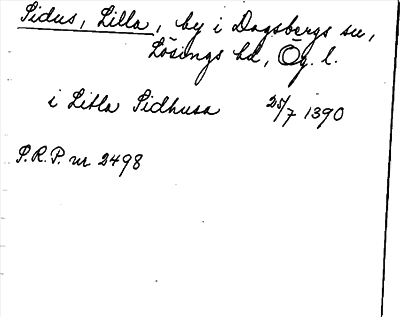 Sidus, Lilla, by i Dagsbergs sn,
Lösings hd, Ög. l.
i Litla Sidhusa 25/7 1390
S.R.P. nr 2498